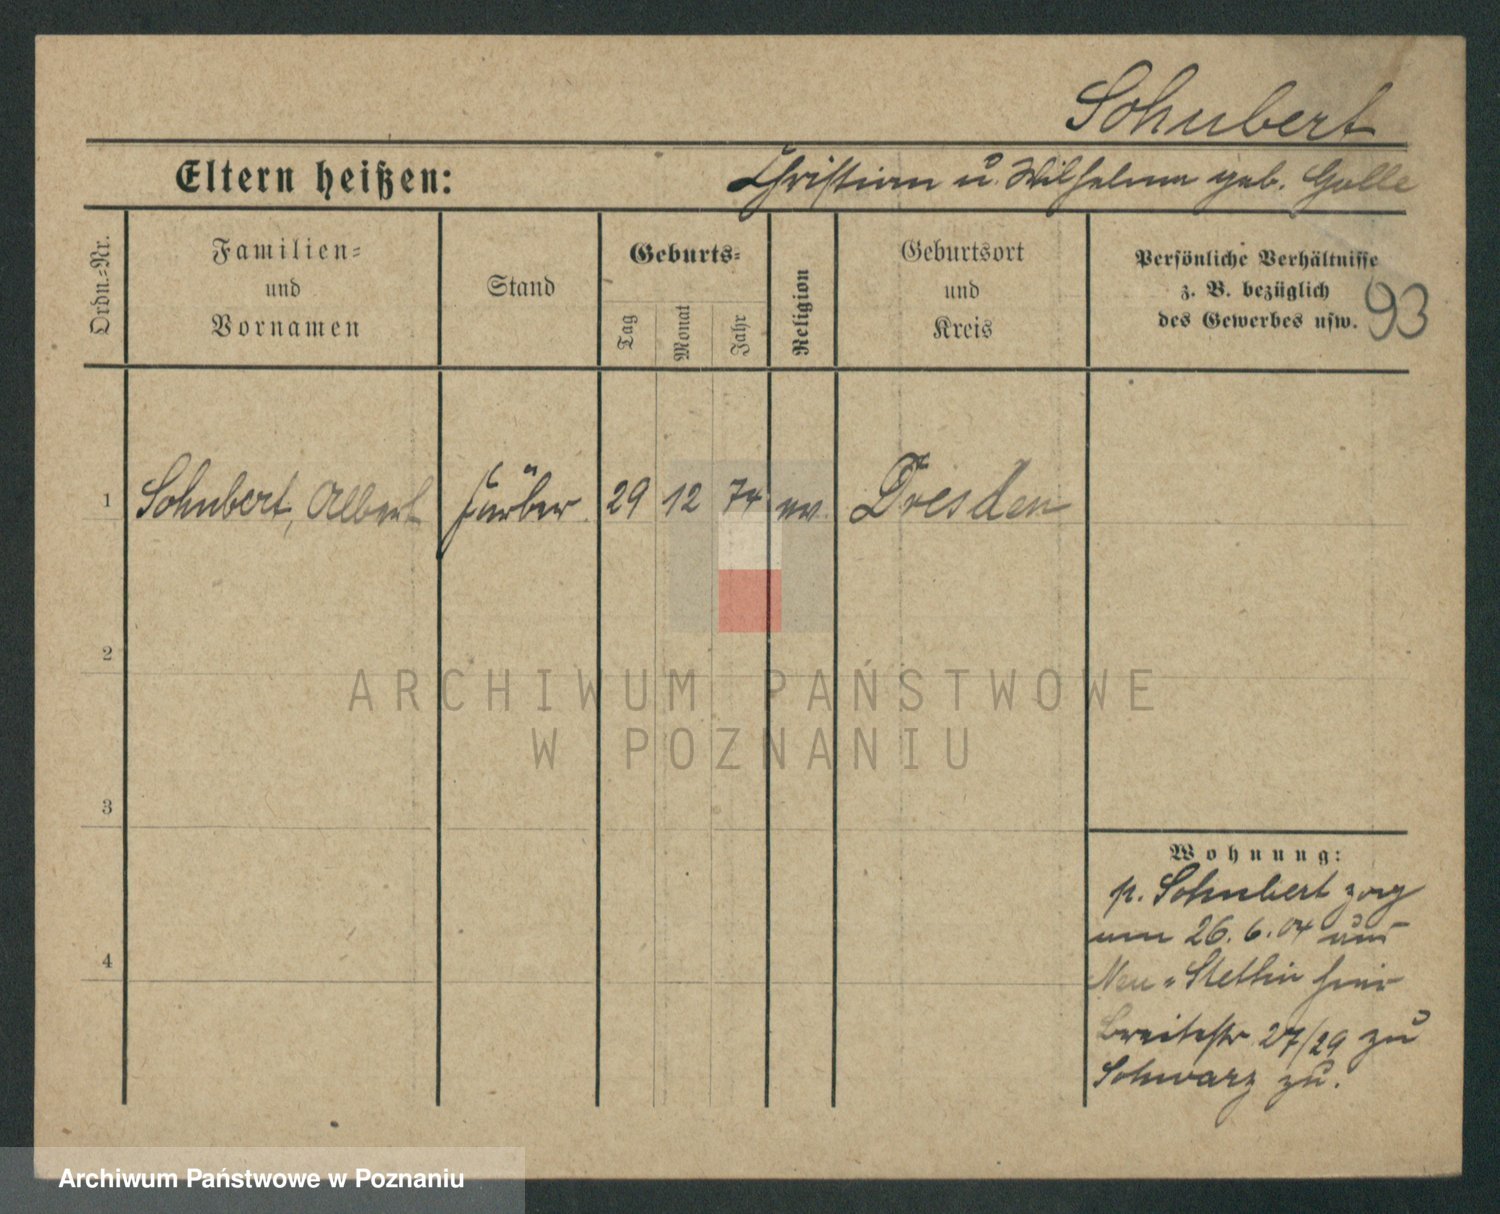 Schubert
Eltern heißen: Christian u. Wilhelmine geb. Golle
Ordn.=Nr.
Familien=
und
Vornamen
Stand
Geburts=
Tag
Monat
Jahr
Religion
Geburtsort
und
Kreis
Persönliche Verhältnisse
z. B. bezüglich
des Gewerbes usw.
93
1 Schubert, Albert Färber 29 12 74 ev. Dresden
2
3
4
Wohnung:
p. Schubert zog
am 26. 6. 04 aus
Neu-Stettin hier
Breitestr 27/29 zu
Schwarz zu.
ARCHIWUM PAŃSTWOWE
W POZNANIU
Archiwum Państwowe w Poznaniu